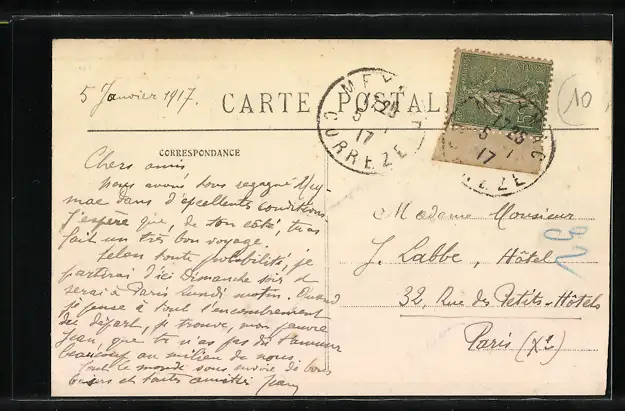 5 Janvier 1917.
CARTE POSTALE
MEYMAC
17 25
5 1
17
CORREZE
MEYMAC
17 25
5 1
17
CORREZE
10
CORRESPONDANCE
Chers amis
nous avons tous regagné Mey-
mac dans d'excellentes conditions.
J'espère que, de ton côté, tu as
fait un très bon voyage.
Selon toute probabilité, je
partirai d'ici Dimanche soir et
serai à Paris lundi matin. Quand
je pense à tout l'encombrement
du départ, je trouve, mon pauvre
Jean, que tu n'as pas dû t'amuser
beaucoup au milieu de nous.
Tout le monde vous envoie de bons
baisers et toutes amitiés Jean
Madame Monsieur
J. Labbe, Hôtel
32, Rue des Petits-Hôtels
Paris (Xe)
92